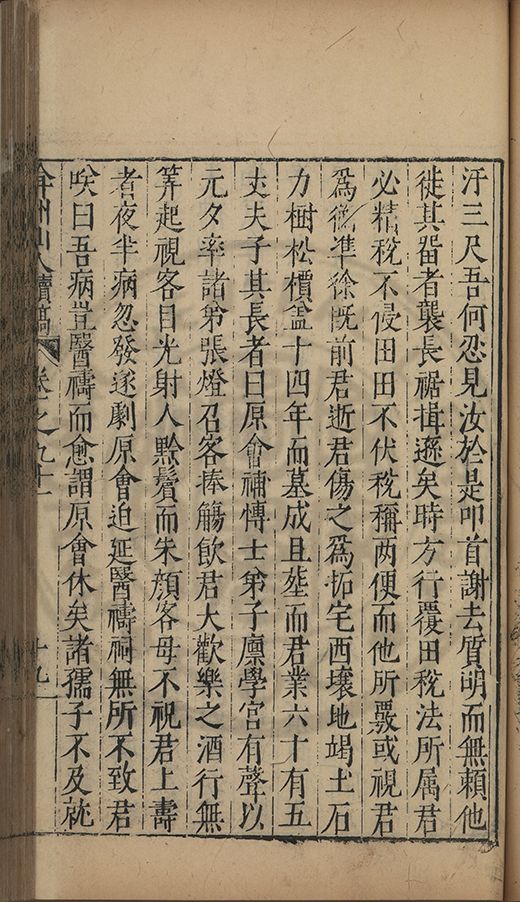 汙三尺吾何忍見汝於是叩首謝去質明而無頼他
徙其畱者襲長裾揖遜矣時方行覆田税法所属君
必精税不侵田田不伏税稱两便而他所覈或視君
為衡凖徐既前君逝君傷之為拓宅西壤地竭土石
力樹松檟葢十四年而墓成且塟而君業六十有五
丈夫子其長者曰原會補愽士弟子廪學宮有聲以
元夕率諸弟張燈召客捧觴飲君大歡樂之酒行無
筭起視客目光射人黟鬢而朱顔客母不祝君上壽
者夜半病忽發遂劇原會迫延醫禱祠無所不致君
唉曰吾病豈醫禱而愈謂原會休矣諸孺子不及就
弇州山人續稿 卷之九十一 十九